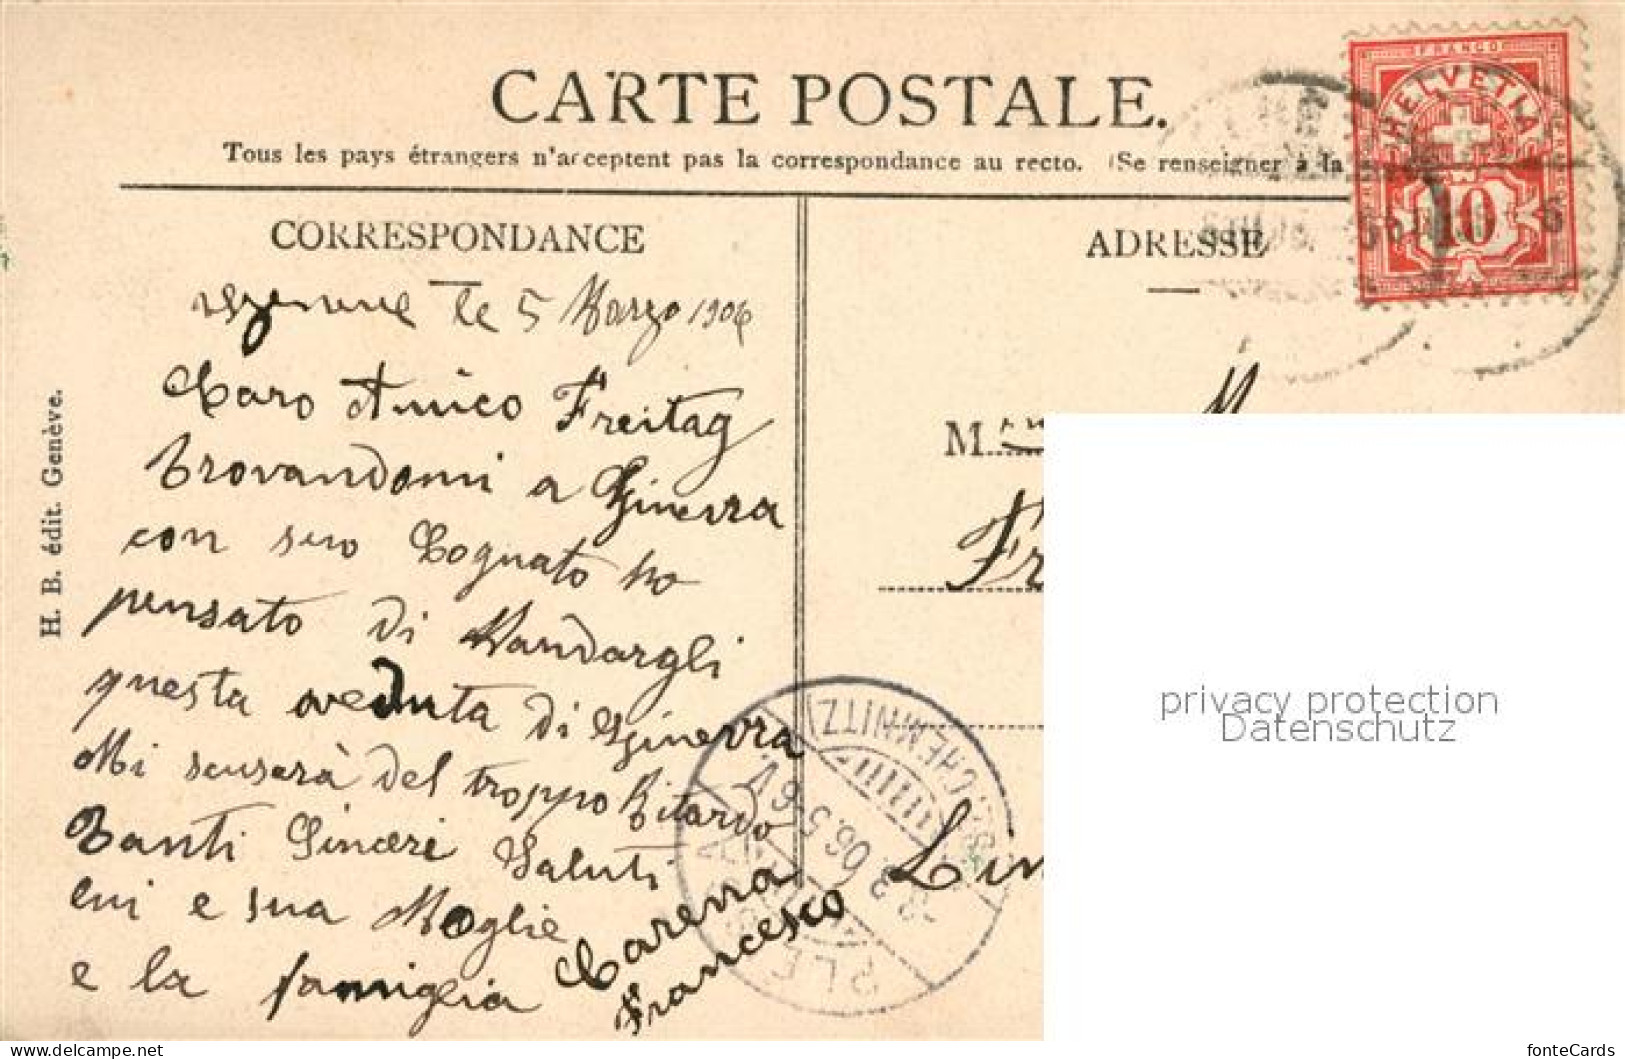 CARTE POSTALE.
Tous les pays étrangers n'acceptent pas la correspondance au recto. (Se renseigner à la
CORRESPONDANCE
le 5 Marzo 1906
Caro Amico Freitag
Trovandomi a Ginevra
con suo Cognato ho
pensato di Mandargli
questa veduta di Ginevra
Mi scuserà del troppo Ritardo
Tanti Sinceri Saluti
lui e sua Moglie
e la famiglia
Carena
Francesco
H. B. édit. Genève.
ADRESSE
M
Fr
Lim
FRANCO
HELVETIA
10
CHEMNITZ
8.3.06.5-6V
privacy protection
Datenschutz
www.delcampe.net
fonteCards